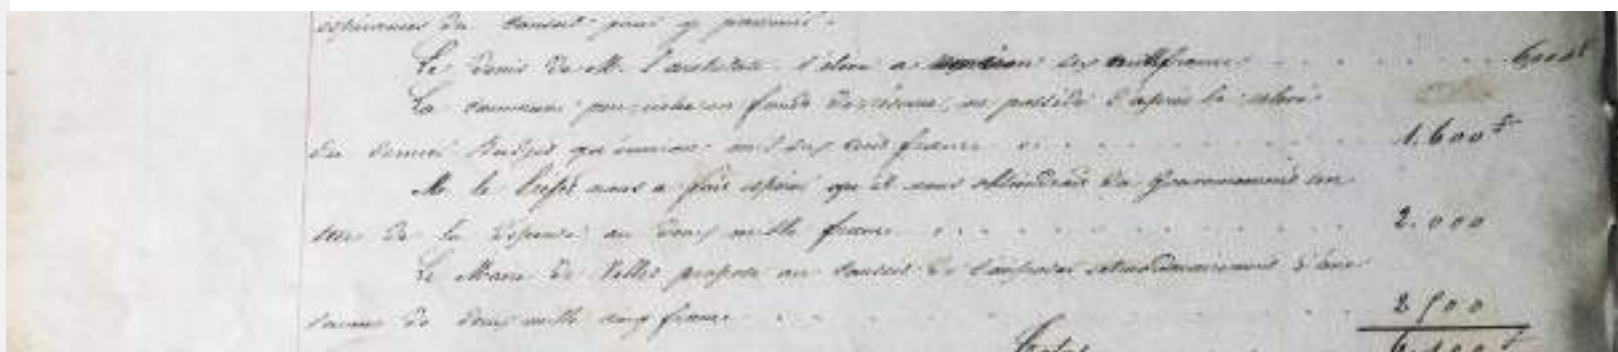 du Conseil pour y parvenir.
Le devis de M. l'architecte s'élève à six mille francs 6000f
La commune pour en fonds de réserve, ne possède d'après le relevé
du dernier Budget qu'environ mil six cent francs 1.600f
M. le Préfet nous a fait espérer qu'il nous obtiendrait du Gouvernement un
de la dépense au deux mille francs 2.000
Le Maire de Velles propose au Conseil de s'imposer extraordinairement d'une
somme de deux mille cinq francs 2500
Total